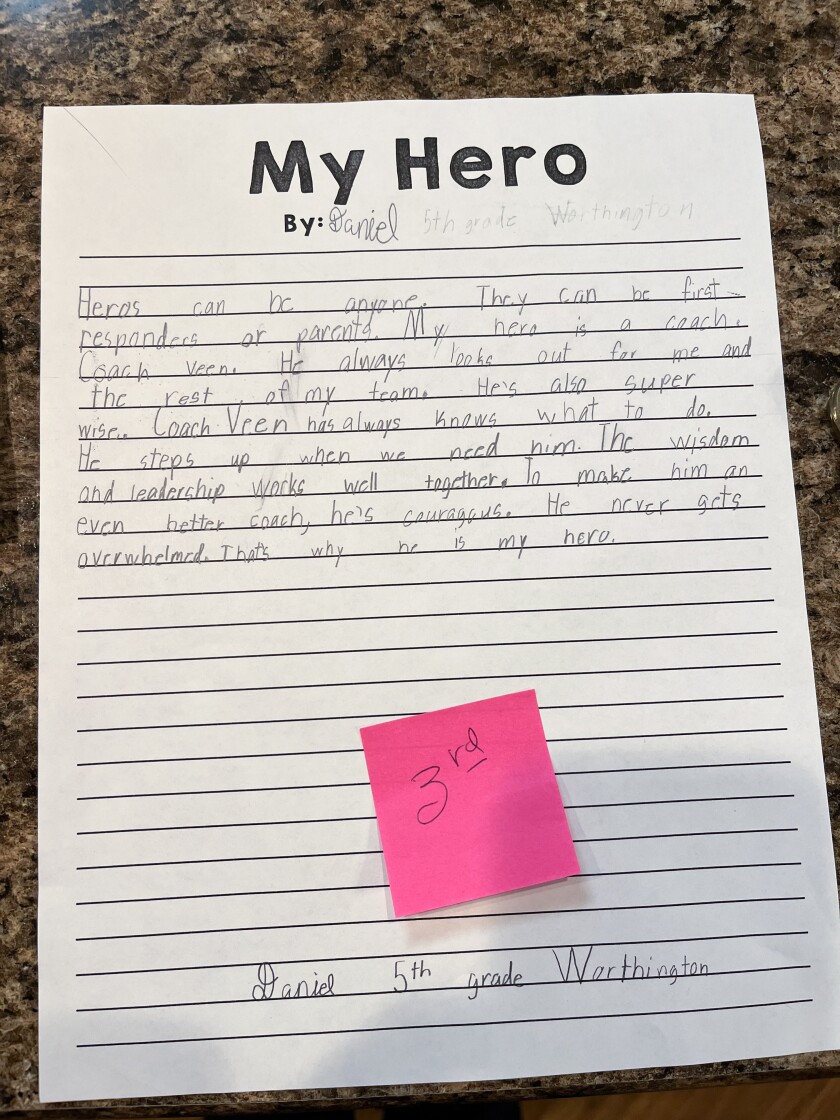 My Hero
By: Daniel 5th grade Worthington
Heros can be anyone. They can be first-
responders or parents. My hero is a coach.
Coach Veen. He always looks out for me and
the rest of my team. He's also super
wise. Coach Veen has always knows what to do.
He steps up when we need him. The wisdom
and leadership works well together. To make him an
even better coach, he's couragous. He never gets
overwhelmed. That's why he is my hero.
3rd
Daniel 5th grade Worthington